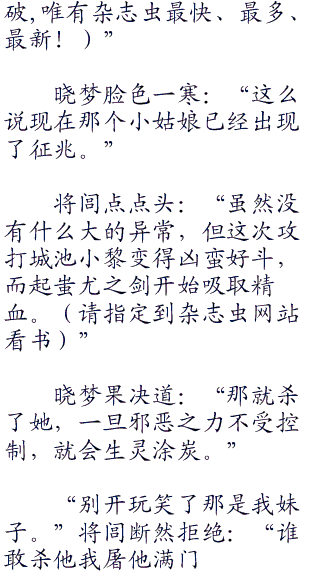 破,唯有杂志虫最快、最多、
最新！）”
晓梦脸色一寒：“这么
说现在那个小姑娘已经出现
了征兆。”
将闾点点头：“虽然没
有什么大的异常，但这次攻
打城池小黎变得凶蛮好斗，
而起蚩尤之剑开始吸取精
血。（请指定到杂志虫网站
看书）”
晓梦果决道：“那就杀
了她，一旦邪恶之力不受控
制，就会生灵涂炭。”
“别开玩笑了那是我妹
子。”将闾断然拒绝：“谁
敢杀他我屠他满门